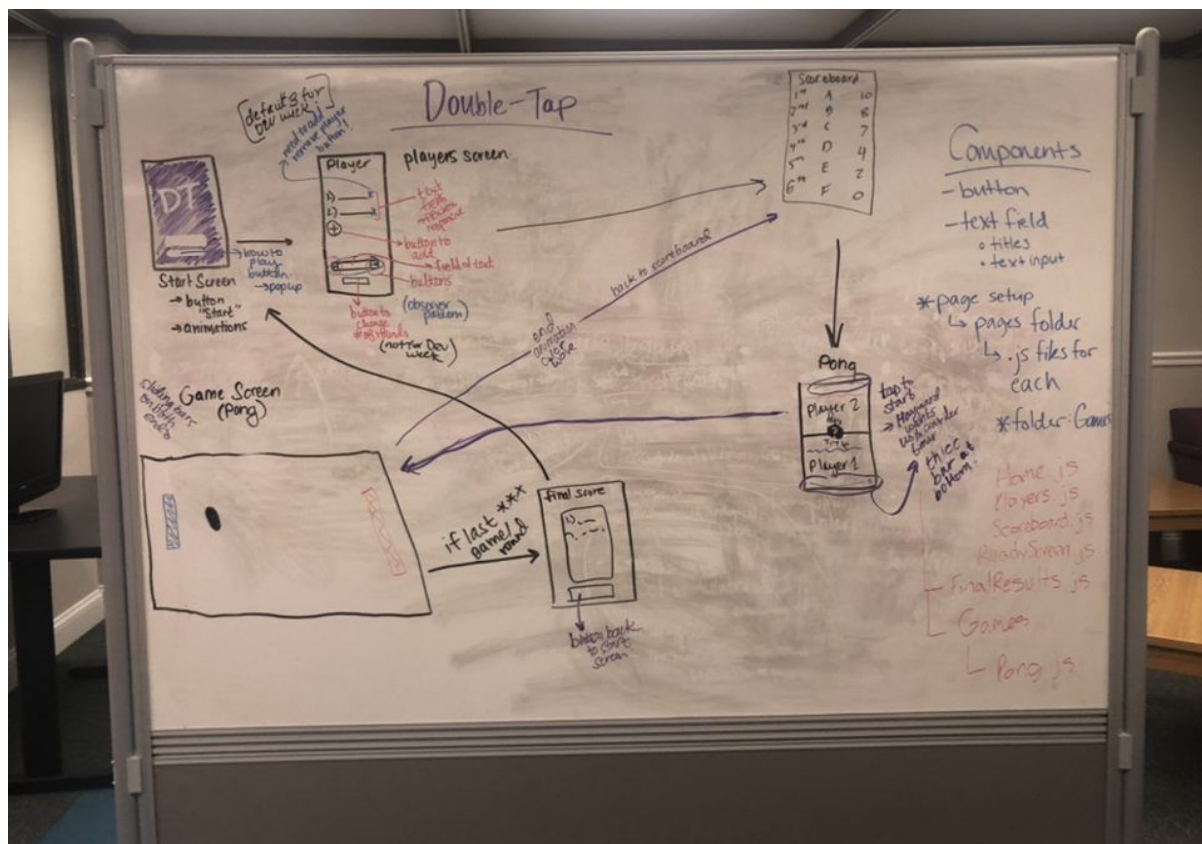 Double-Tap
[default 3 for
Dev week]
need to add
remove player
button!
DT
Start Screen
→ button
"Start"
→ animations
how to
play
button
→ popup
Player
1)
2)
+
players screen
text
field
button to
add
field of text
buttons
(observer
pattern)
button to
change
# of rounds
(not for Dev
week)
Scoreboard
1st A 10
2nd B 8
3rd C 7
4th D 4
5th E 2
6th F 0
back to scoreboard
end
animation
color
wave
Pong
Player 2
Player 1
tap to
start
thicc
bar at
bottom!
Game Screen
(Pong)
sliding bars
on both
ends
if last ***
game/
round
final score
1)
button back
to start
screen
Components
- button
- text field
titles
text input
*page setup
↳ pages folder
↳ .js files for
each
*folder: Games
Home.js
Players.js
Scoreboard.js
ReadyScreen.js
FinalResults.js
Games
Pong.js